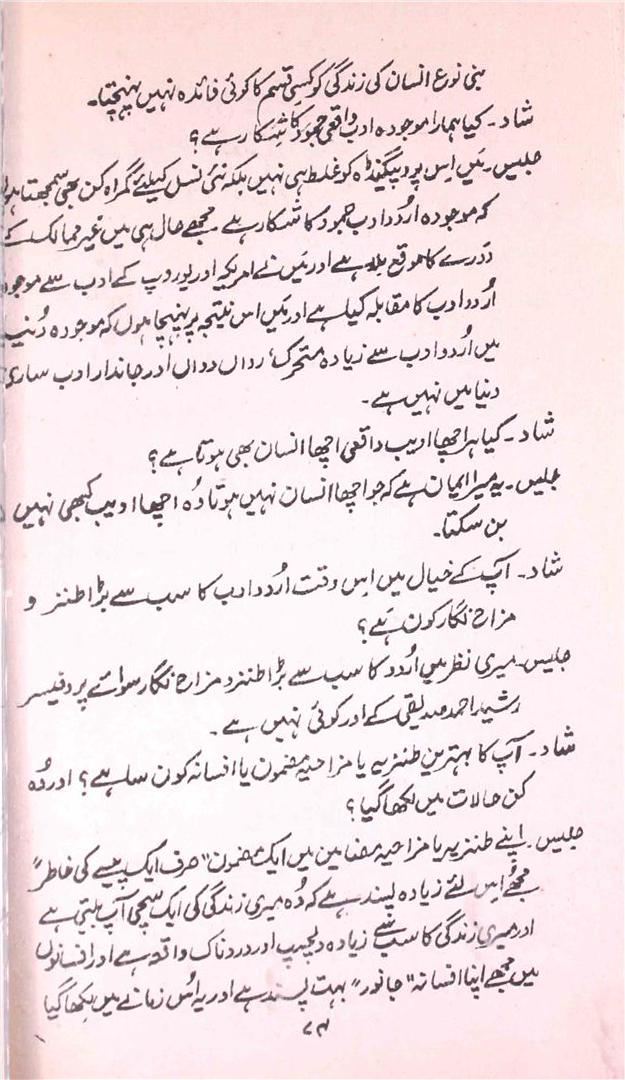 بنی نوع انسان کی زندگی کو کسی قسم کا کوئی فائدہ نہیں پہنچتا۔
شاد۔ کیا ہمارا موجودہ ادب واقعی جمود کا شکار ہے؟
جلیس۔ میں اس پروپیگنڈہ کو غلط ہی نہیں بلکہ نئی نسل کیلئے گمراہ کن بھی سمجھتا
کہ موجودہ اردو ادب جمود کا شکار ہے۔ مجھے حال ہی میں غیر ممالک کے
دورے کا موقع ملا ہے اور میں نے امریکہ اور یوروپ کے ادب سے موجود
اُردو ادب کا مقابلہ کیا ہے اور میں اس نتیجہ پر پہنچا ہوں کہ موجودہ
میں اُردو ادب سے زیادہ متحرک، رواں دواں اور جاندار ادب ساری
دنیا میں نہیں ہے۔
شاد۔ کیا ہر اچھا ادیب واقعی اچھا انسان بھی ہوتا ہے؟
جلیس۔ یہ میرا ایمان ہے کہ جو اچھا انسان نہیں ہوتا وُہ اچھا ادیب کبھی نہیں
بن سکتا۔
شاد۔ آپ کے خیال میں اس وقت اُردو ادب کا سب سے بڑا طنز و
مزاح نگار کون ہے؟
جلیس۔ میری نظر میں اُردو کا سب سے بڑا طنز و مزاح نگار سوائے پروفیسر
رشید احمد صدیقی کے اور کوئی نہیں ہے۔
شاد۔ آپ کا بہترین طنزیہ یا مزاحیہ مضمون یا افسانہ کون سا ہے؟ اور وُہ
کن حالات میں لکھا گیا؟
جلیس۔ اپنے طنزیہ یا مزاحیہ مضامین میں ایک مضمون "صرف ایک پیسے کی خاطر"
مجھے اس لئے زیادہ پسند ہے کہ وُہ میری زندگی کی ایک سچی آپ بیتی ہے
اور میری زندگی کا سب سے زیادہ دلچسپ اور دردناک واقعہ ہے اور افسانوں
میں مجھے اپنا افسانہ "جانور" بہت پسند ہے اور یہ اُس زمانے میں لکھا گیا
۷۴